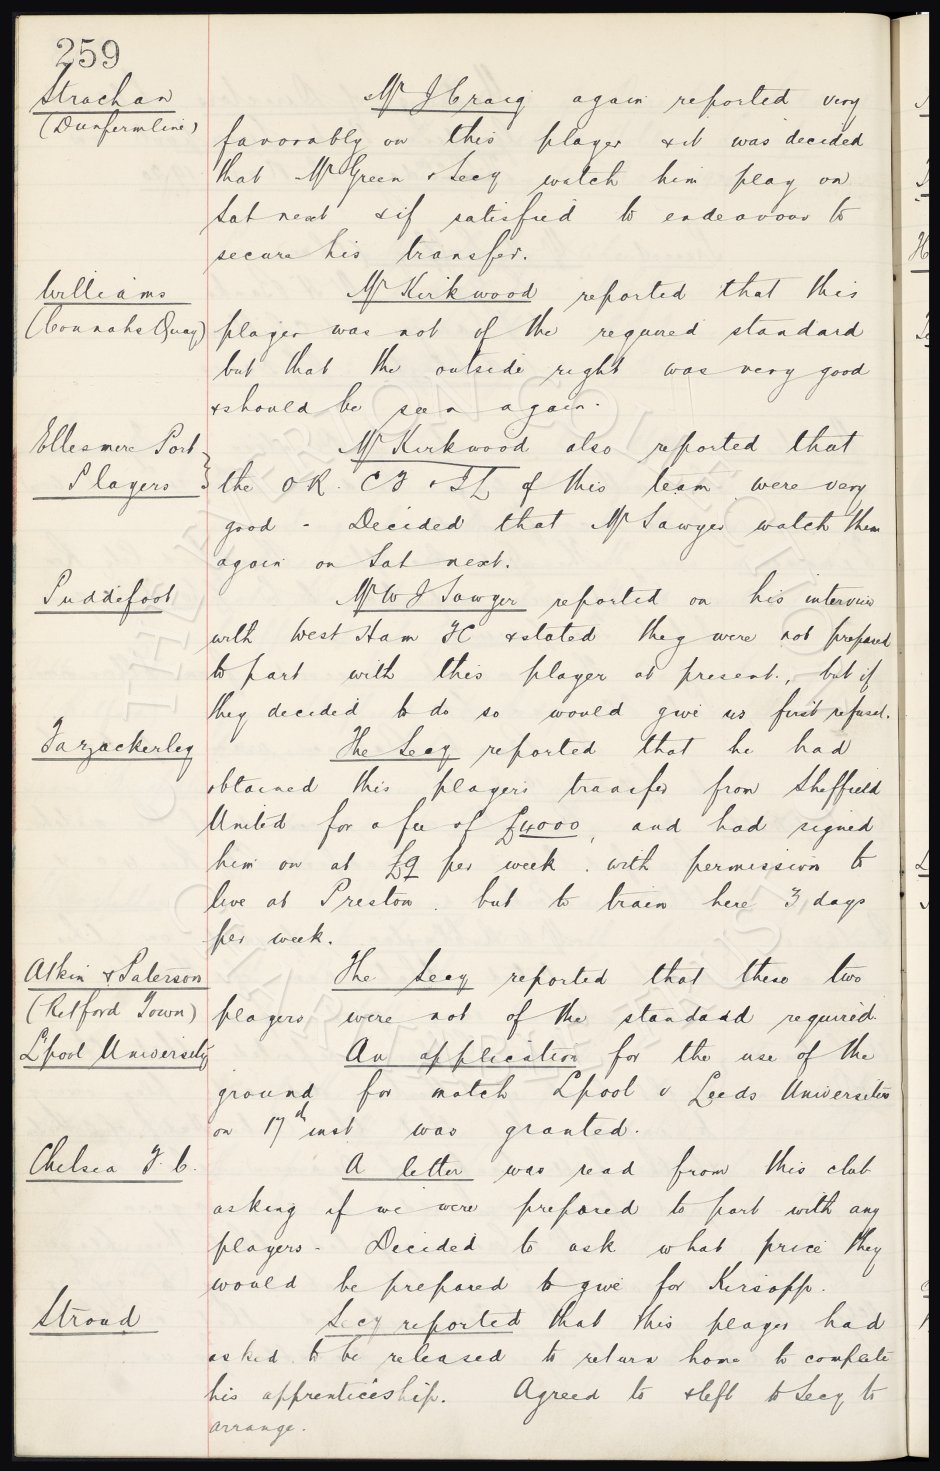 259
Strachan
(Dunfermline)
Mr J Craig again reported very
favorably on this player & it was decided
that Mr Green & Secy watch him play on
Sat next & if satisfied to endeavour to
secure his transfer.
Williams
(Connahs Quay)
Mr Kirkwood reported that this
player was not of the required standard
but that the outside right was very good
& should be seen again.
Ellesmere Port
Players
Mr Kirkwood also reported that
the OR. CF & IL of this team were very
good - Decided that Mr Sawyer watch them
again on Sat next.
Puddefoot
Mr W J Sawyer reported on his interview
with West Ham FC & stated they were not prepared
to part with this player at present, but if
they decided to do so would give us first refusal.
Fazackerley
The Secy reported that he had
obtained this players transfer from Sheffield
United for a fee of £4000, and had signed
him on at £9 per week. with permission to
live at Preston. but to train here 3 days
per week.
Atkin & Paterson
(Retford Town)
The Secy reported that these two
players were not of the standadd required.
L'pool University
An application for the use of the
ground for match Lpool v Leeds Universities
on 17th inst was granted.
Chelsea F. C.
A letter was read from this club
asking if we were prepared to part with any
players - Decided to ask what price they
would be prepared to give for Kirsopp.
Stroud
Secy reported that this player had
asked to be released to return home to complete
his apprenticeship. Agreed to & left to Secy to
arrange.